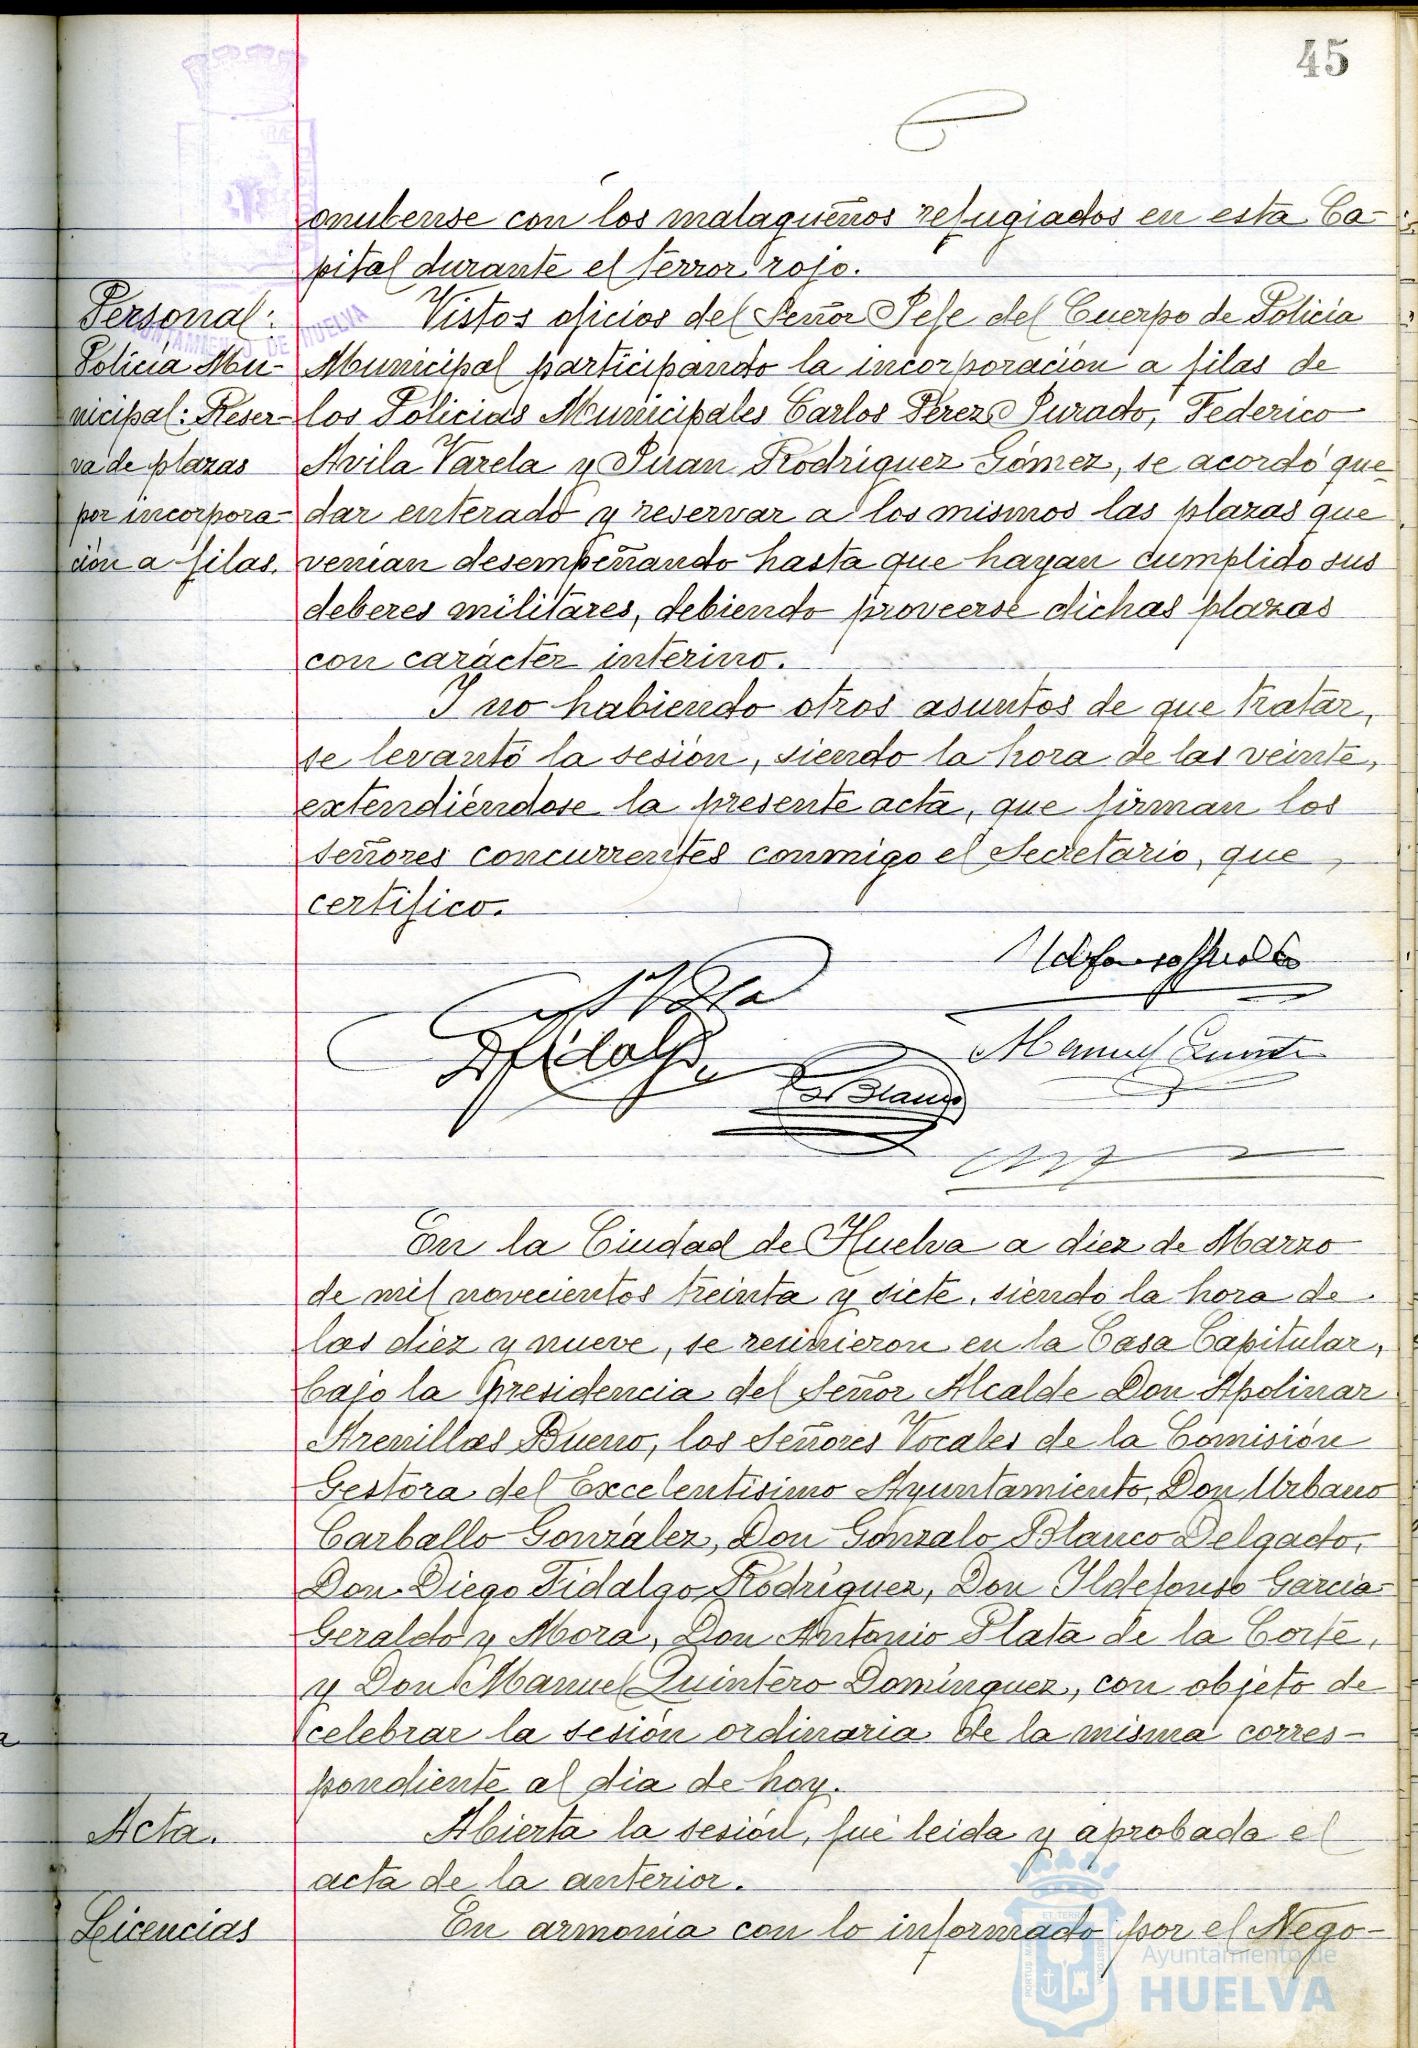 45
onubense con los malagueños refugiados en esta Ca-
pital durante el terror rojo.
Personal:
Policía Mu-
nicipal: Reser-
va de plazas
por incorpora-
ción a filas.
Vistos oficios del Señor Jefe del Cuerpo de Policía
Municipal participando la incorporación a filas de
los Policias Municipales Carlos Pérez Jurado, Federico
Avila Varela y Juan Rodríguez Gómez, se acordó que-
dar enterado y reservar a los mismos las plazas que
venían desempeñando hasta que hayan cumplido sus
deberes militares, debiendo proveerse dichas plazas
con carácter interino.
Y no habiendo otros asuntos de que tratar,
se levantó la sesión, siendo la hora de las veinte,
extendiéndose la presente acta, que firman los
señores concurrentes conmigo el Secretario, que
certifico.
D Fidalgo
G Blanco
Manuel Quintero
En la Ciudad de Huelva a diez de Marzo
de mil novecientos treinta y siete, siendo la hora de
las diez y nueve, se reunieron en la Casa Capitular,
bajo la presidencia del Señor Alcalde Don Apolinar
Arenillas Bueno, los Señores Vocales de la Comisión
Gestora del Excelentísimo Ayuntamiento, Don Urbano
Carballo González, Don Gonzalo Blanco Delgado,
Don Diego Fidalgo Rodríguez, Don Ildefonso García-
Geraldo y Mora, Don Antonio Plata de la Corte,
y Don Manuel Quintero Domínguez, con objeto de
celebrar la sesión ordinaria de la misma corres-
pondiente al día de hoy.
Acta.
Abierta la sesión, fué leida y aprobada el
acta de la anterior.
Licencias
En armonía con lo informado por el Nego-
AYUNTAMIENTO DE HUELVA
Ayuntamiento de
HUELVA